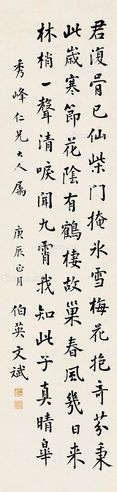 君復骨已仙柴门掩氷雪梅花抱奇芬秉
此歲寒節花陰有鶴棲故巢春風幾日来
林梢一聲清唳聞九霄我知此子真晴皋
秀峰仁兄大人属 庚辰正月 伯英文斌